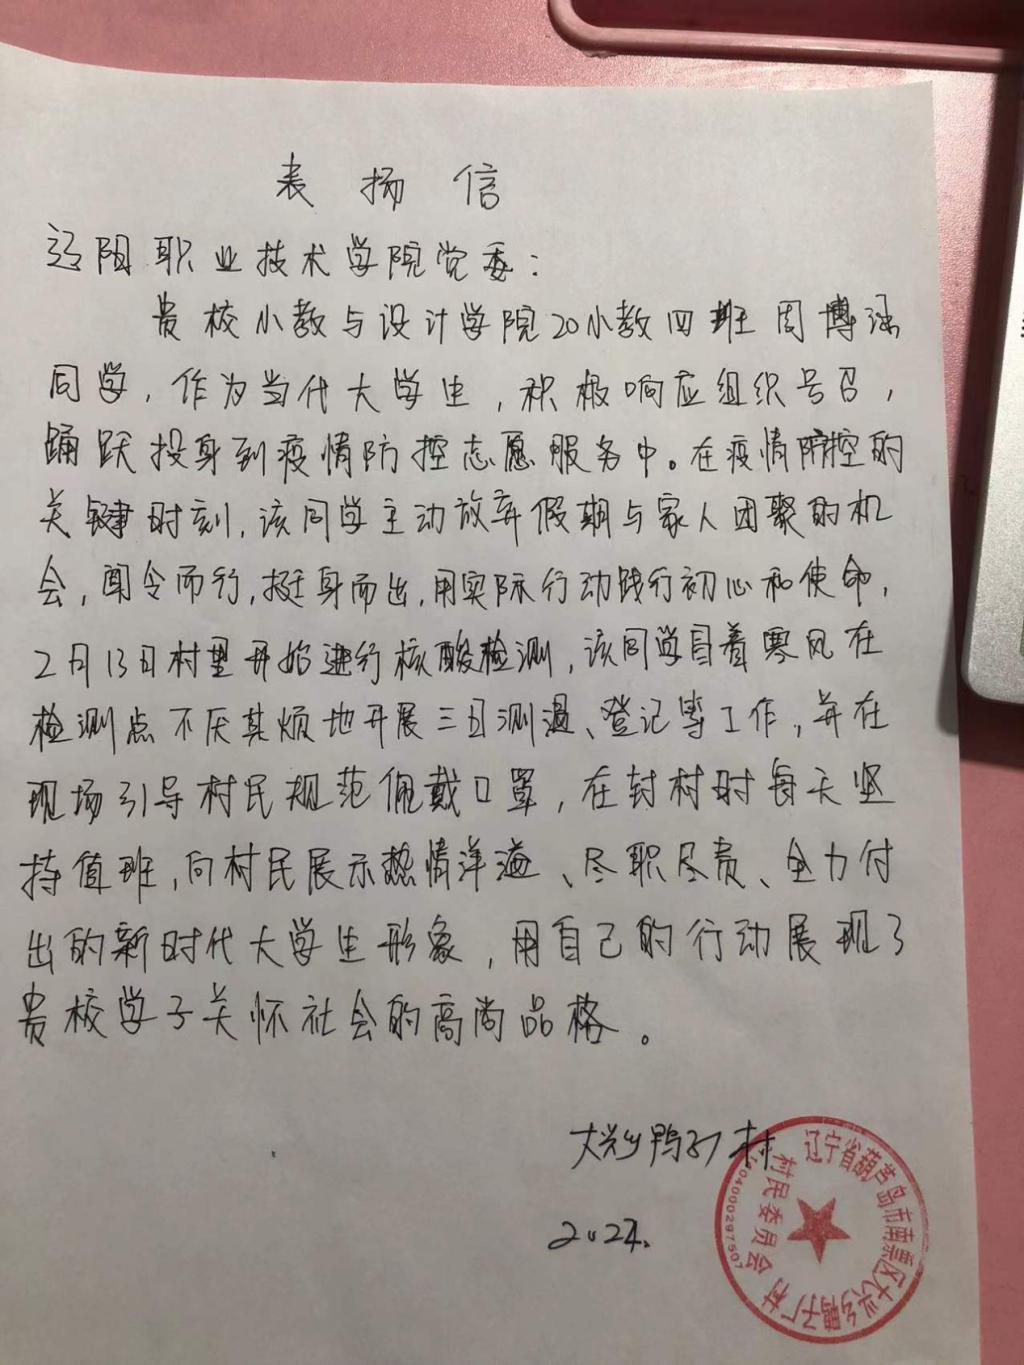 表扬信
辽阳职业技术学院党委：
贵校小教与设计学院20小教四班周博涵
同学，作为当代大学生，积极响应组织号召，
踊跃投身到疫情防控志愿服务中。在疫情防控的
关键时刻，该同学主动放弃假期与家人团聚的机
会，闻令而行，挺身而出，用实际行动践行初心和使命，
2月13日村里开始进行核酸检测，该同学冒着寒风在
检测点不厌其烦地开展三日测温、登记等工作，并在
现场引导村民规范佩戴口罩，在封村时每天坚
持值班，向村民展示热情洋溢、尽职尽责、全力付
出的新时代大学生形象，用自己的行动展现了
贵校学子关怀社会的高尚品格。
大兴乡鸭子厂村
辽宁省葫芦岛市南票区大兴乡鸭子厂村
村民委员会